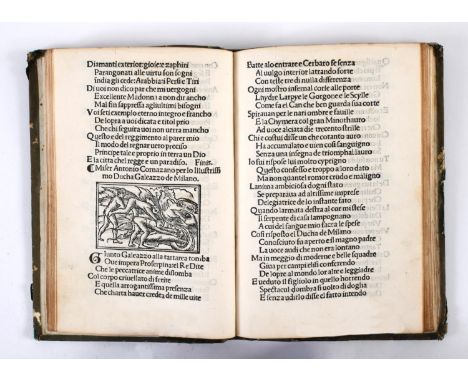 Diamanti exterior: gioie: zaphini
Parangonati alle uirtu son sogni
India gli cede: Arabbia: i Persi e Tiri
Di uoi non dico par che mi uergogni
Excellente Madonna a non dir ancho
Mai fin suppresa agistuimi bisogni
Voi seti exemplo eterno integro e francho
De lopra a uoi dicata e titol prio
Che chi seguira uoi non uerra mancho
Questo e del reggimento al parer mio
Ti modo del regnar uero preciso
Principe tale e proprio in terra un Dio
E la citta che l regge e un paradiso. Finis.
Miser Antonio Cornazano per lo Illustrissi
mo Ducha Galeazzo de Milano.
Giunto Galeazzo alla tartarea tomba
Oue impera Proserpina et Re Dite
Che le peccatrice anime dislomba
Col corpo ciuellato di ferite
E quella arrogantissima presenza
Che charta hauer credea de mille uite
Batte alo entrare e Cerbaro se senza
Al uulgo interior latrando forte
Con teste tre di nulla differenza
Ogni mostro infernal corse alle porte
Lhydre Larpye le Gorgone e le Scylle
Come fa el Can che ben guarda sua corte
Spiran per le nari ombre e fauille
E la Chymera col gran Minothauro
Ad uoce alciata di trecento strille
Chi e costui disse un che cotanto auro
Ha accumulato e uien cosi sanguigno
Senza una insegna de triomphal lauro
Io fui rispose lui molto cyprigno
Questo confesso e troppo a loro dato
Ma non quanto el romor crudo e maligno
Lanima ambiciosa dogni stato
Se preparaua ad altissime imprese
Deliegiatrice de lo instante fato
Quando larmata destra al cor mi stese
Ti serpente di casa lampognano
A cui del sangue mio faccia le spese
Cosi rispose l Ducha de Milano
Conosciuto fu aperto e il magno padre
La uoce audi che non era lontano
Ma in meggio di moderne e belle squadre
Giua per campi elisi conferendo
De lopre al mondo lor altre e leggiadre
E ueduto il figliolo in quello horrendo
Spectacul dombra si uolto di doglia
E senza udirlo disse el fatto intendo